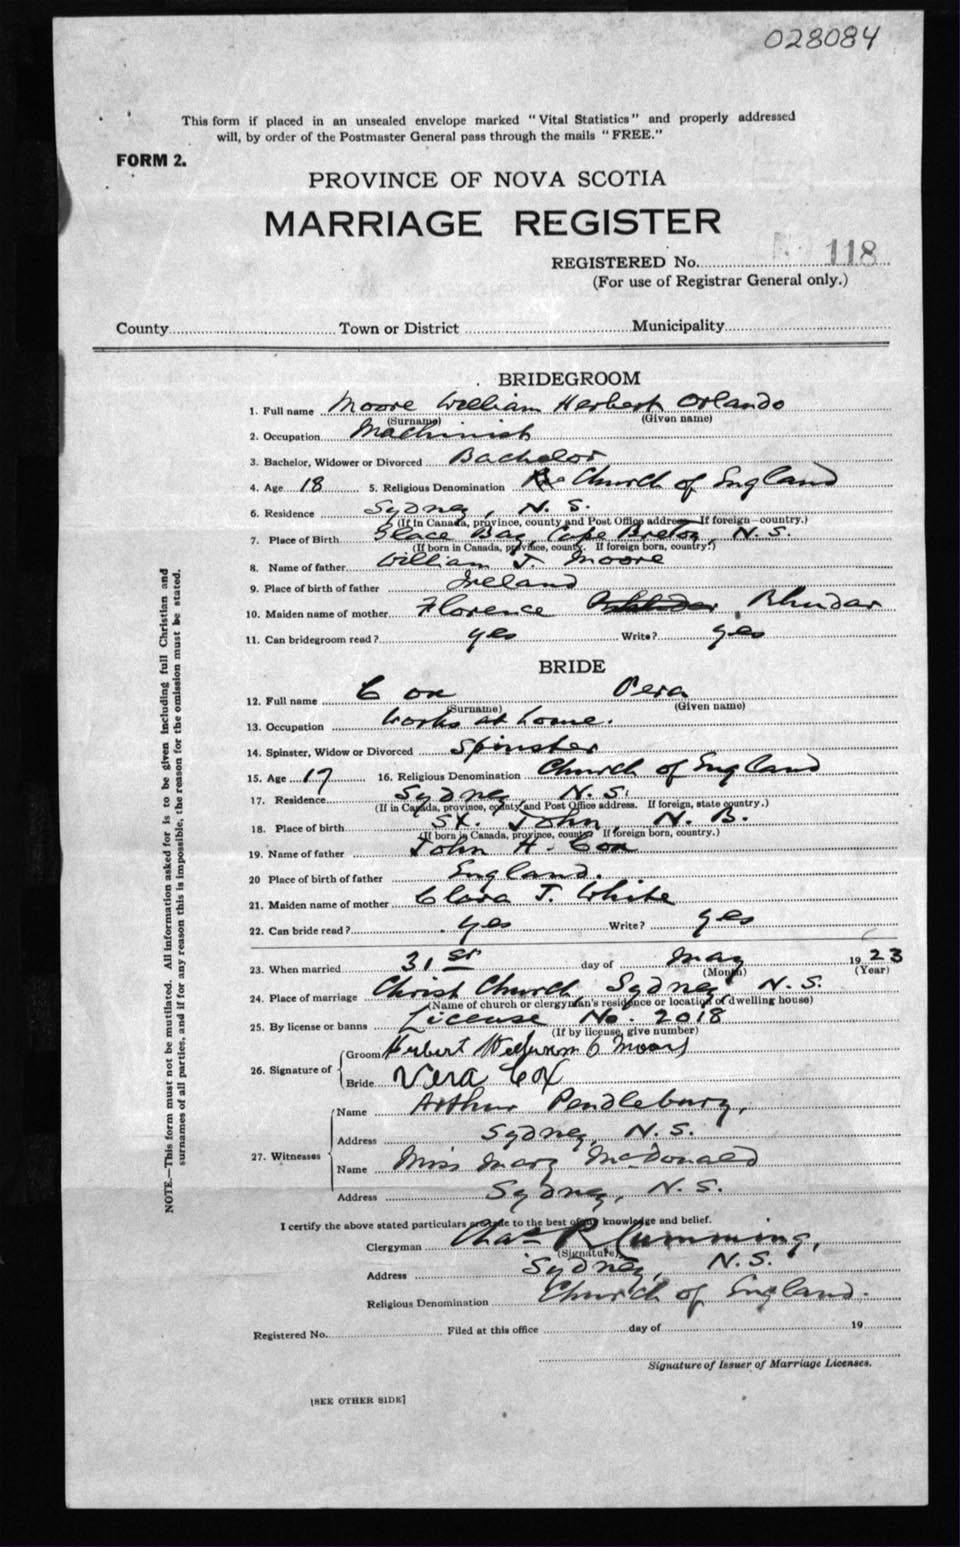 028084
This form if placed in an unsealed envelope marked "Vital Statistics" and properly addressed
will, by order of the Postmaster General pass through the mails "FREE."
FORM 2.
PROVINCE OF NOVA SCOTIA
MARRIAGE REGISTER
REGISTERED No. 118
(For use of Registrar General only.)
County Town or District Municipality
BRIDEGROOM
1. Full name Moore William Herbert Orlando
(Surname) (Given name)
2. Occupation Machinist
3. Bachelor, Widower or Divorced Bachelor
4. Age 18 5. Religious Denomination Church of England
6. Residence Sydney, N. S.
(If in Canada, province, county and Post Office address If foreign—country.)
7. Place of Birth Glace Bay, Cape Breton, N. S.
(If born in Canada, province, county. If foreign born, country.)
8. Name of father William J. Moore
9. Place of birth of father Ireland
10. Maiden name of mother Florence Rhudar
11. Can bridegroom read? yes Write? yes
BRIDE
12. Full name Cox Vera
(Surname) (Given name)
13. Occupation Works at home.
14. Spinster, Widow or Divorced Spinster
15. Age 17 16. Religious Denomination Church of England
17. Residence Sydney, N. S.
(If in Canada, province, county and Post Office address. If foreign, state country.)
18. Place of birth St. John, N. B.
(If born in Canada, province, county If foreign born, country.)
19. Name of father John H. Cox
20 Place of birth of father England.
21. Maiden name of mother Clara J. White
22. Can bride read? yes Write? yes
23. When married 31st day of May 1923
(Month) (Year)
24. Place of marriage Christ Church, Sydney, N. S.
(Name of church or clergyman's residence or location of dwelling house)
25. By license or banns License No. 2018
(If by license, give number)
26. Signature of Groom Herbert O Moore
Bride Vera Cox
27. Witnesses Name Arthur Pendlebury,
Address Sydney, N. S.
Name Miss Mary McDonald
Address Sydney, N. S.
I certify the above stated particulars are true to the best of my knowledge and belief.
Clergyman Chas R Cumming,
(Signature)
Address Sydney, N. S.
Religious Denomination Church of England.
Registered No. Filed at this office day of 19
Signature of Issuer of Marriage Licenses.
[SEE OTHER SIDE]
NOTE.—This form must not be mutilated. All information asked for is to be given including full Christian and
surnames of all parties, and if for any reason this is impossible, the reason for the omission must be stated.